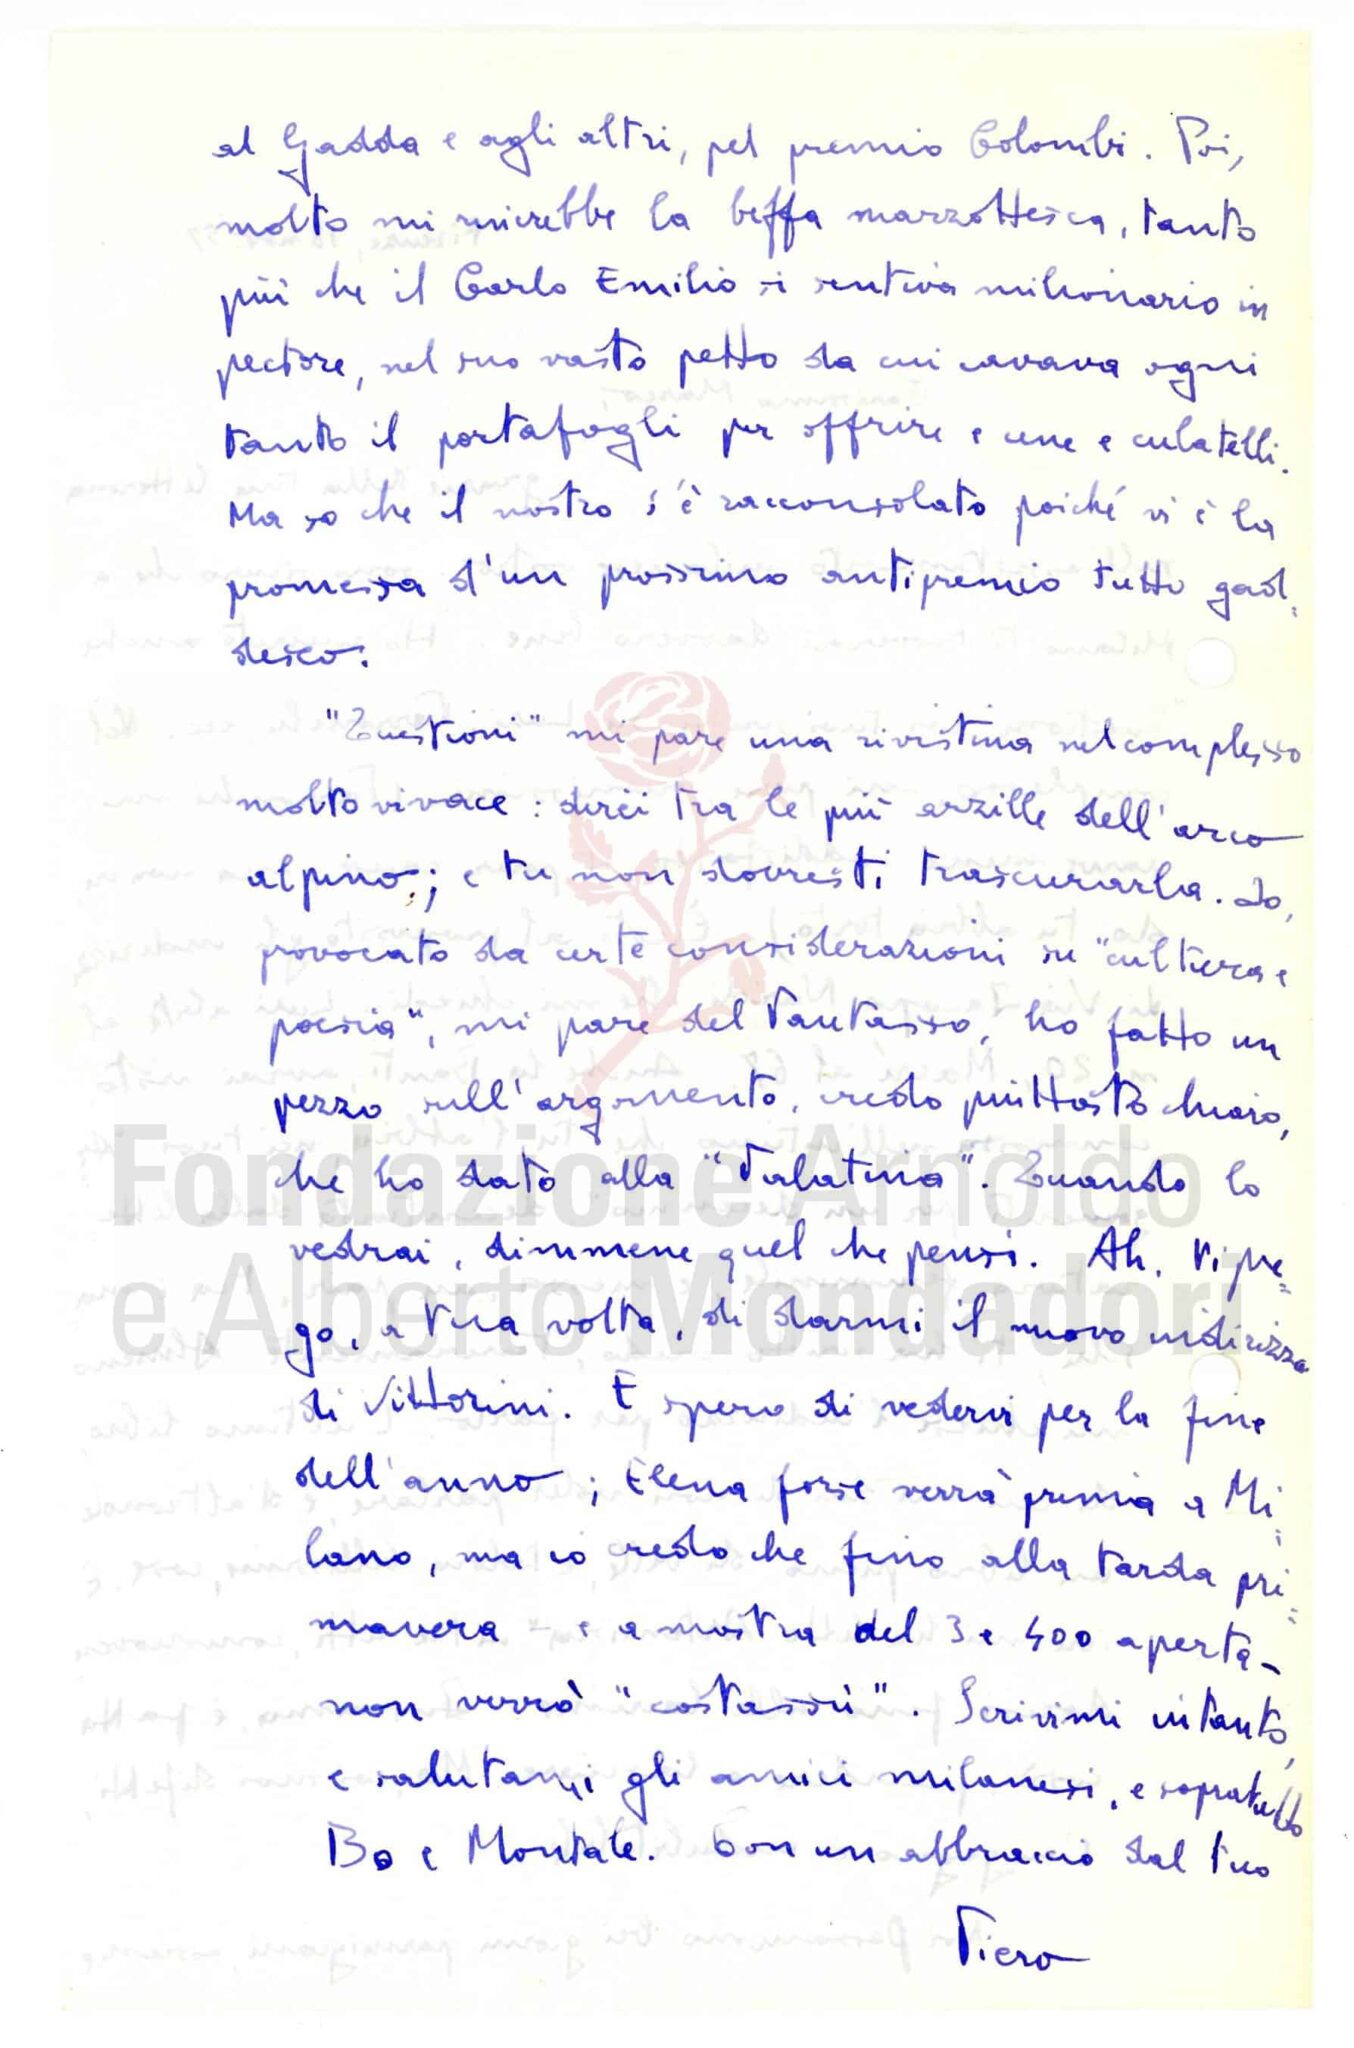 al Gadda e agli altri, pel premio Colombi. Poi,
molto mi rincrebbe la beffa marzottesca, tanto
più che il Carlo Emilio si sentiva milionario in
pectore, nel suo vasto petto da cui cavava ogni
tanto il portafogli per offrire e cene e culatelli.
Ma so che il nostro s'è racconsolato poiché vi è la
promessa d'un prossimo antipremio tutto gad=
desco.
"Questioni" mi pare una rivistina nel complesso
molto vivace: direi tra le più arzille dell'arco
alpino; e tu non dovresti trascurarla. Io,
provocato da certe considerazioni su "cultura e
poesia", mi pare del Tantasso, ho fatto un
pezzo sull'argomento, credo piuttosto chiaro,
che ho dato alla "Palatina". Quando lo
vedrai, dimmene quel che pensi. Ah. Ti pre=
go, a tua volta, di darmi il nuovo indirizzo
di Vittorini. E spero di vedervi per la fine
dell'anno; Elena forse verrà prima a Mi=
lano, ma io credo che fino alla tarda pri=
mavera – e a mostra del 3 e 400 aperta –
non verrò "costassù". Scrivimi intanto,
e salutami gli amici milanesi, e sopratutto
Bo e Montale. Con un abbraccio dal tuo
Piero
Fondazione Arnoldo
e Alberto Mondadori